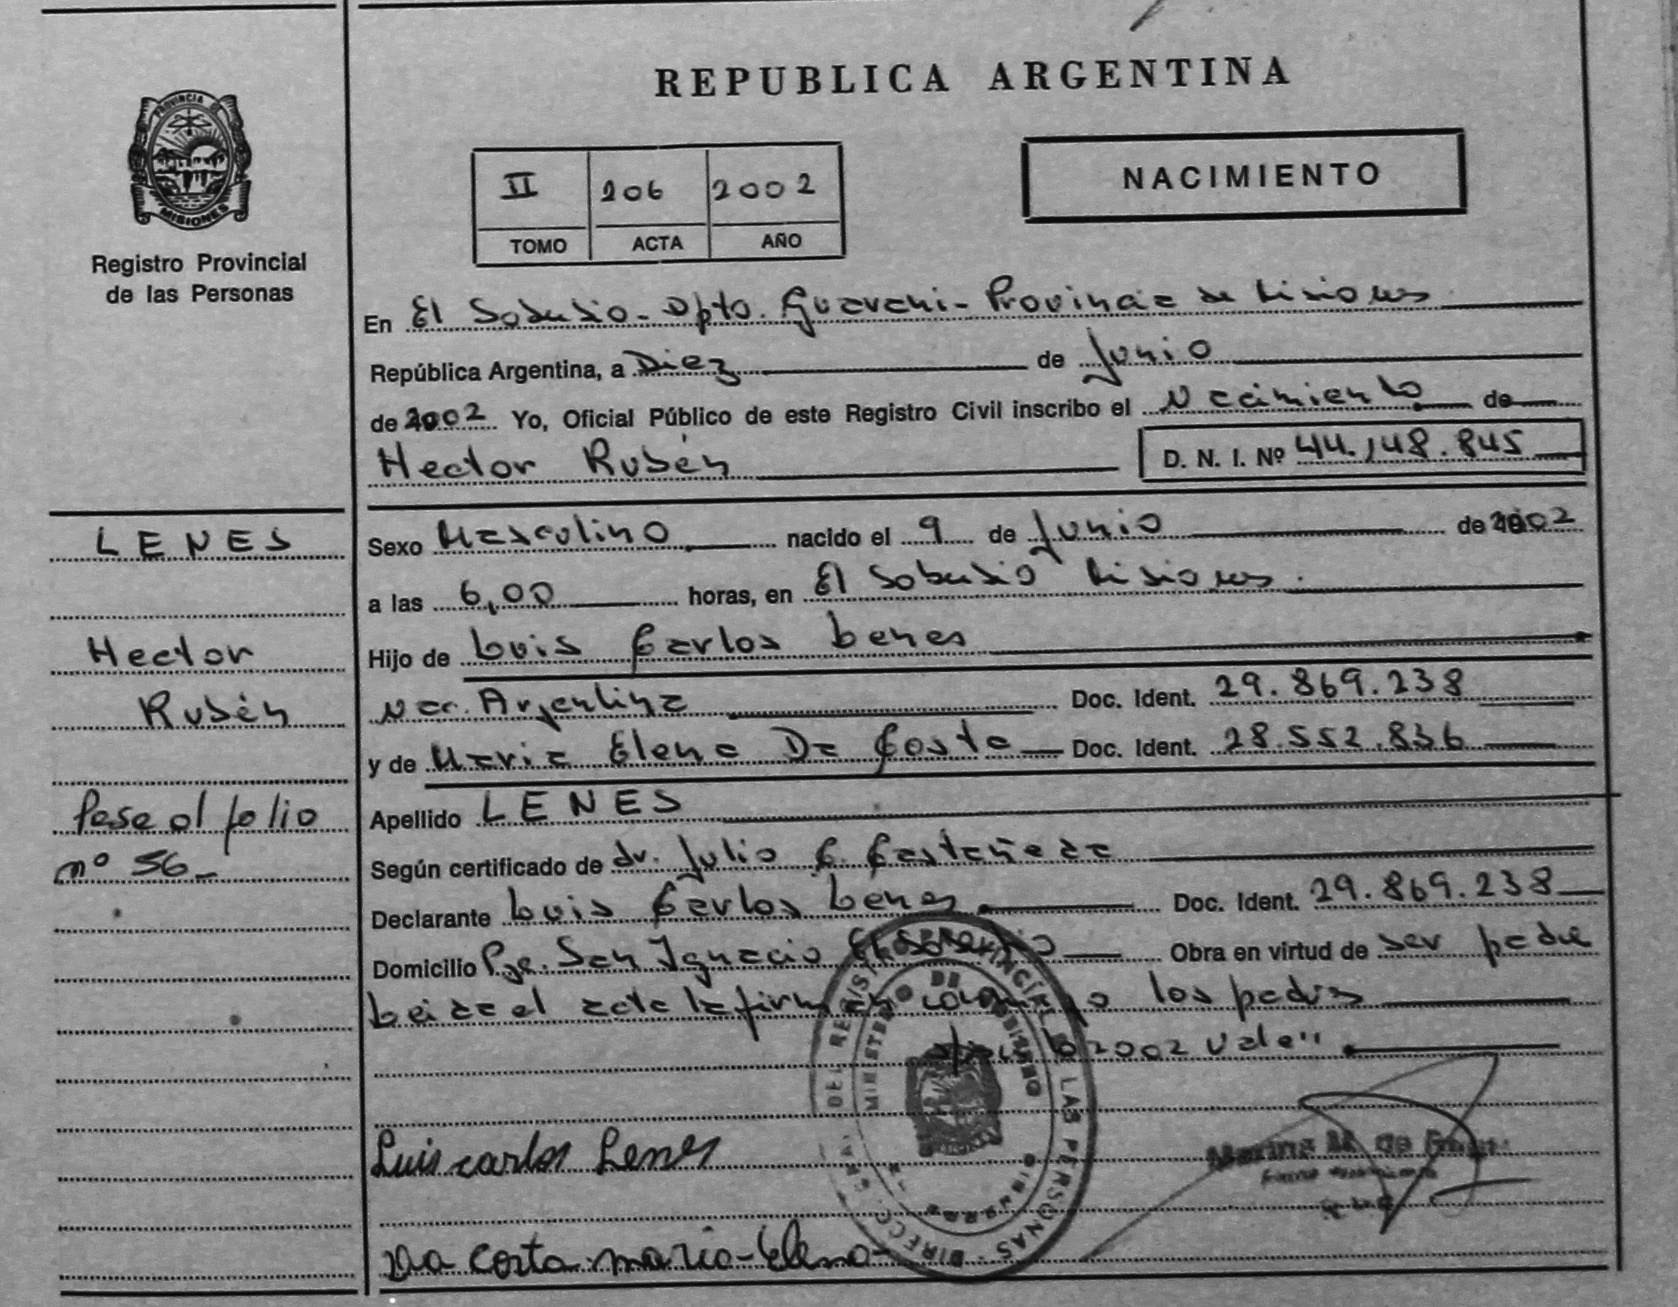 REPUBLICA ARGENTINA
PROVINCIA DE
MISIONES
Registro Provincial
de las Personas
II 206 2002
TOMO ACTA AÑO
NACIMIENTO
En El Soberbio - Dpto. Guarani - Provincia de Misiones
República Argentina, a Diez de Junio
de 2002 Yo, Oficial Público de este Registro Civil inscribo el Nacimiento de
Hector Rubén D. N. I. Nº 44.148.845
LENES
Hector
Rubén
Pase al folio
nº 56_
Sexo Masculino nacido el 9 de Junio de 2002
a las 6,00 horas, en El Soberbio Misiones.
Hijo de Luis Carlos Lenes
Nac. Argentina Doc. Ident. 29.869.238
y de Maria Elena Da Costa Doc. Ident. 28.552.836
Apellido LENES
Según certificado de dr. Julio C. Castañeda
Declarante Luis Carlos Lenes Doc. Ident. 29.869.238
Domicilio Pje. San Ignacio El Soberbio Obra en virtud de ser padre
Leida el acta la firman conmigo los padres
2002 Vale"
Luis carlos Lenes
Da Costa maria-Elena-
DIRECC. GRAL. DEL REGISTRO PROVINCIAL DE LAS PERSONAS
MINISTERIO DE GOBIERNO
MISIONES